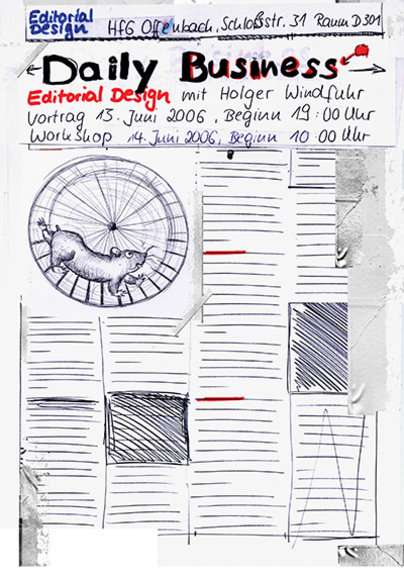 Editorial
Design
HfG Offenbach, Schloßstr. 31 Raum D301
Daily Business
Editorial Design mit Holger Windfuhr
Vortrag 13. Juni 2006, Beginn 19:00 Uhr
Workshop 14. Juni 2006, Beginn 10:00 Uhr